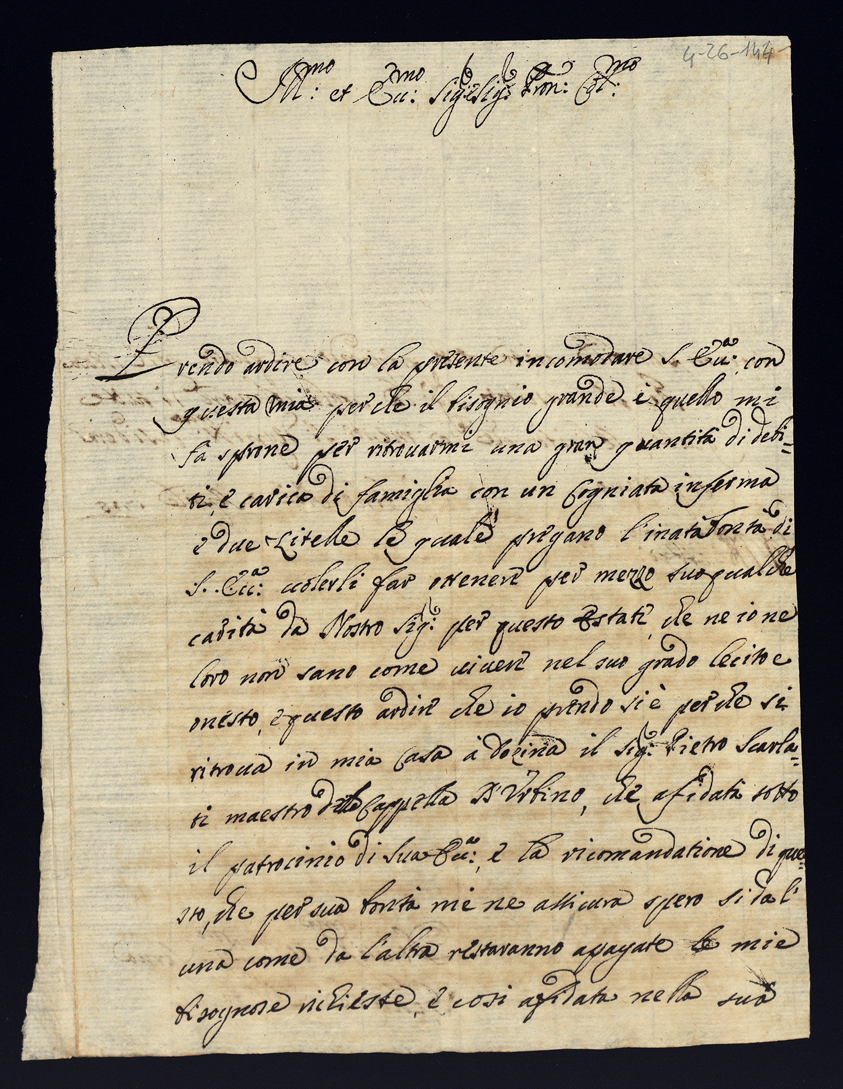 4-26-144
Ill:mo et Ecc:mo Sig:r Sig:r Pron: Col:mo
Prendo ardire con la presente incomodare S. Ecc:a con
questa mia perche il bisognio grande è quello mi
fa sprone per ritrovarmi una gran quantità di debi=
ti, e carica di famiglia con un Cogniata inferma
e due Zitelle le quale pregano l'inata bontà di
S. Ecc:a volerli far ottenere per mezzo suo qualche
carità da Nostro Sig:r per questo Estate, che ne io ne
loro non sano come vivere nel suo grado lecito e
onesto, e questo ardire che io prendo si è perche si
ritrova in mia Casa à dozina il Sig:r Pietro Scarla=
ti maestro di Cappella D'Urbino, che afidati sotto
il patrocinio di Sua Ecc:a, e la ricomandatione di que=
sto, che per sua bontà me ne assicura spero si da l'
una come da l'altra restaranno apagate le mie
bisognose richieste, e cosi afidata nella sua